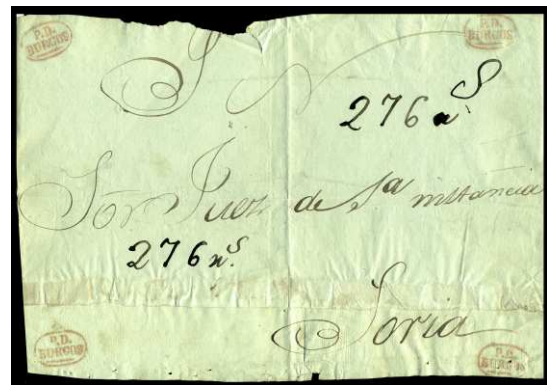 P.D.
BURGOS
P.D.
BURGOS
S N
276 rs
Sor Juez de 1a instancia
276 rs.
Soria
P.D.
BURGOS
P.D.
BURGOS